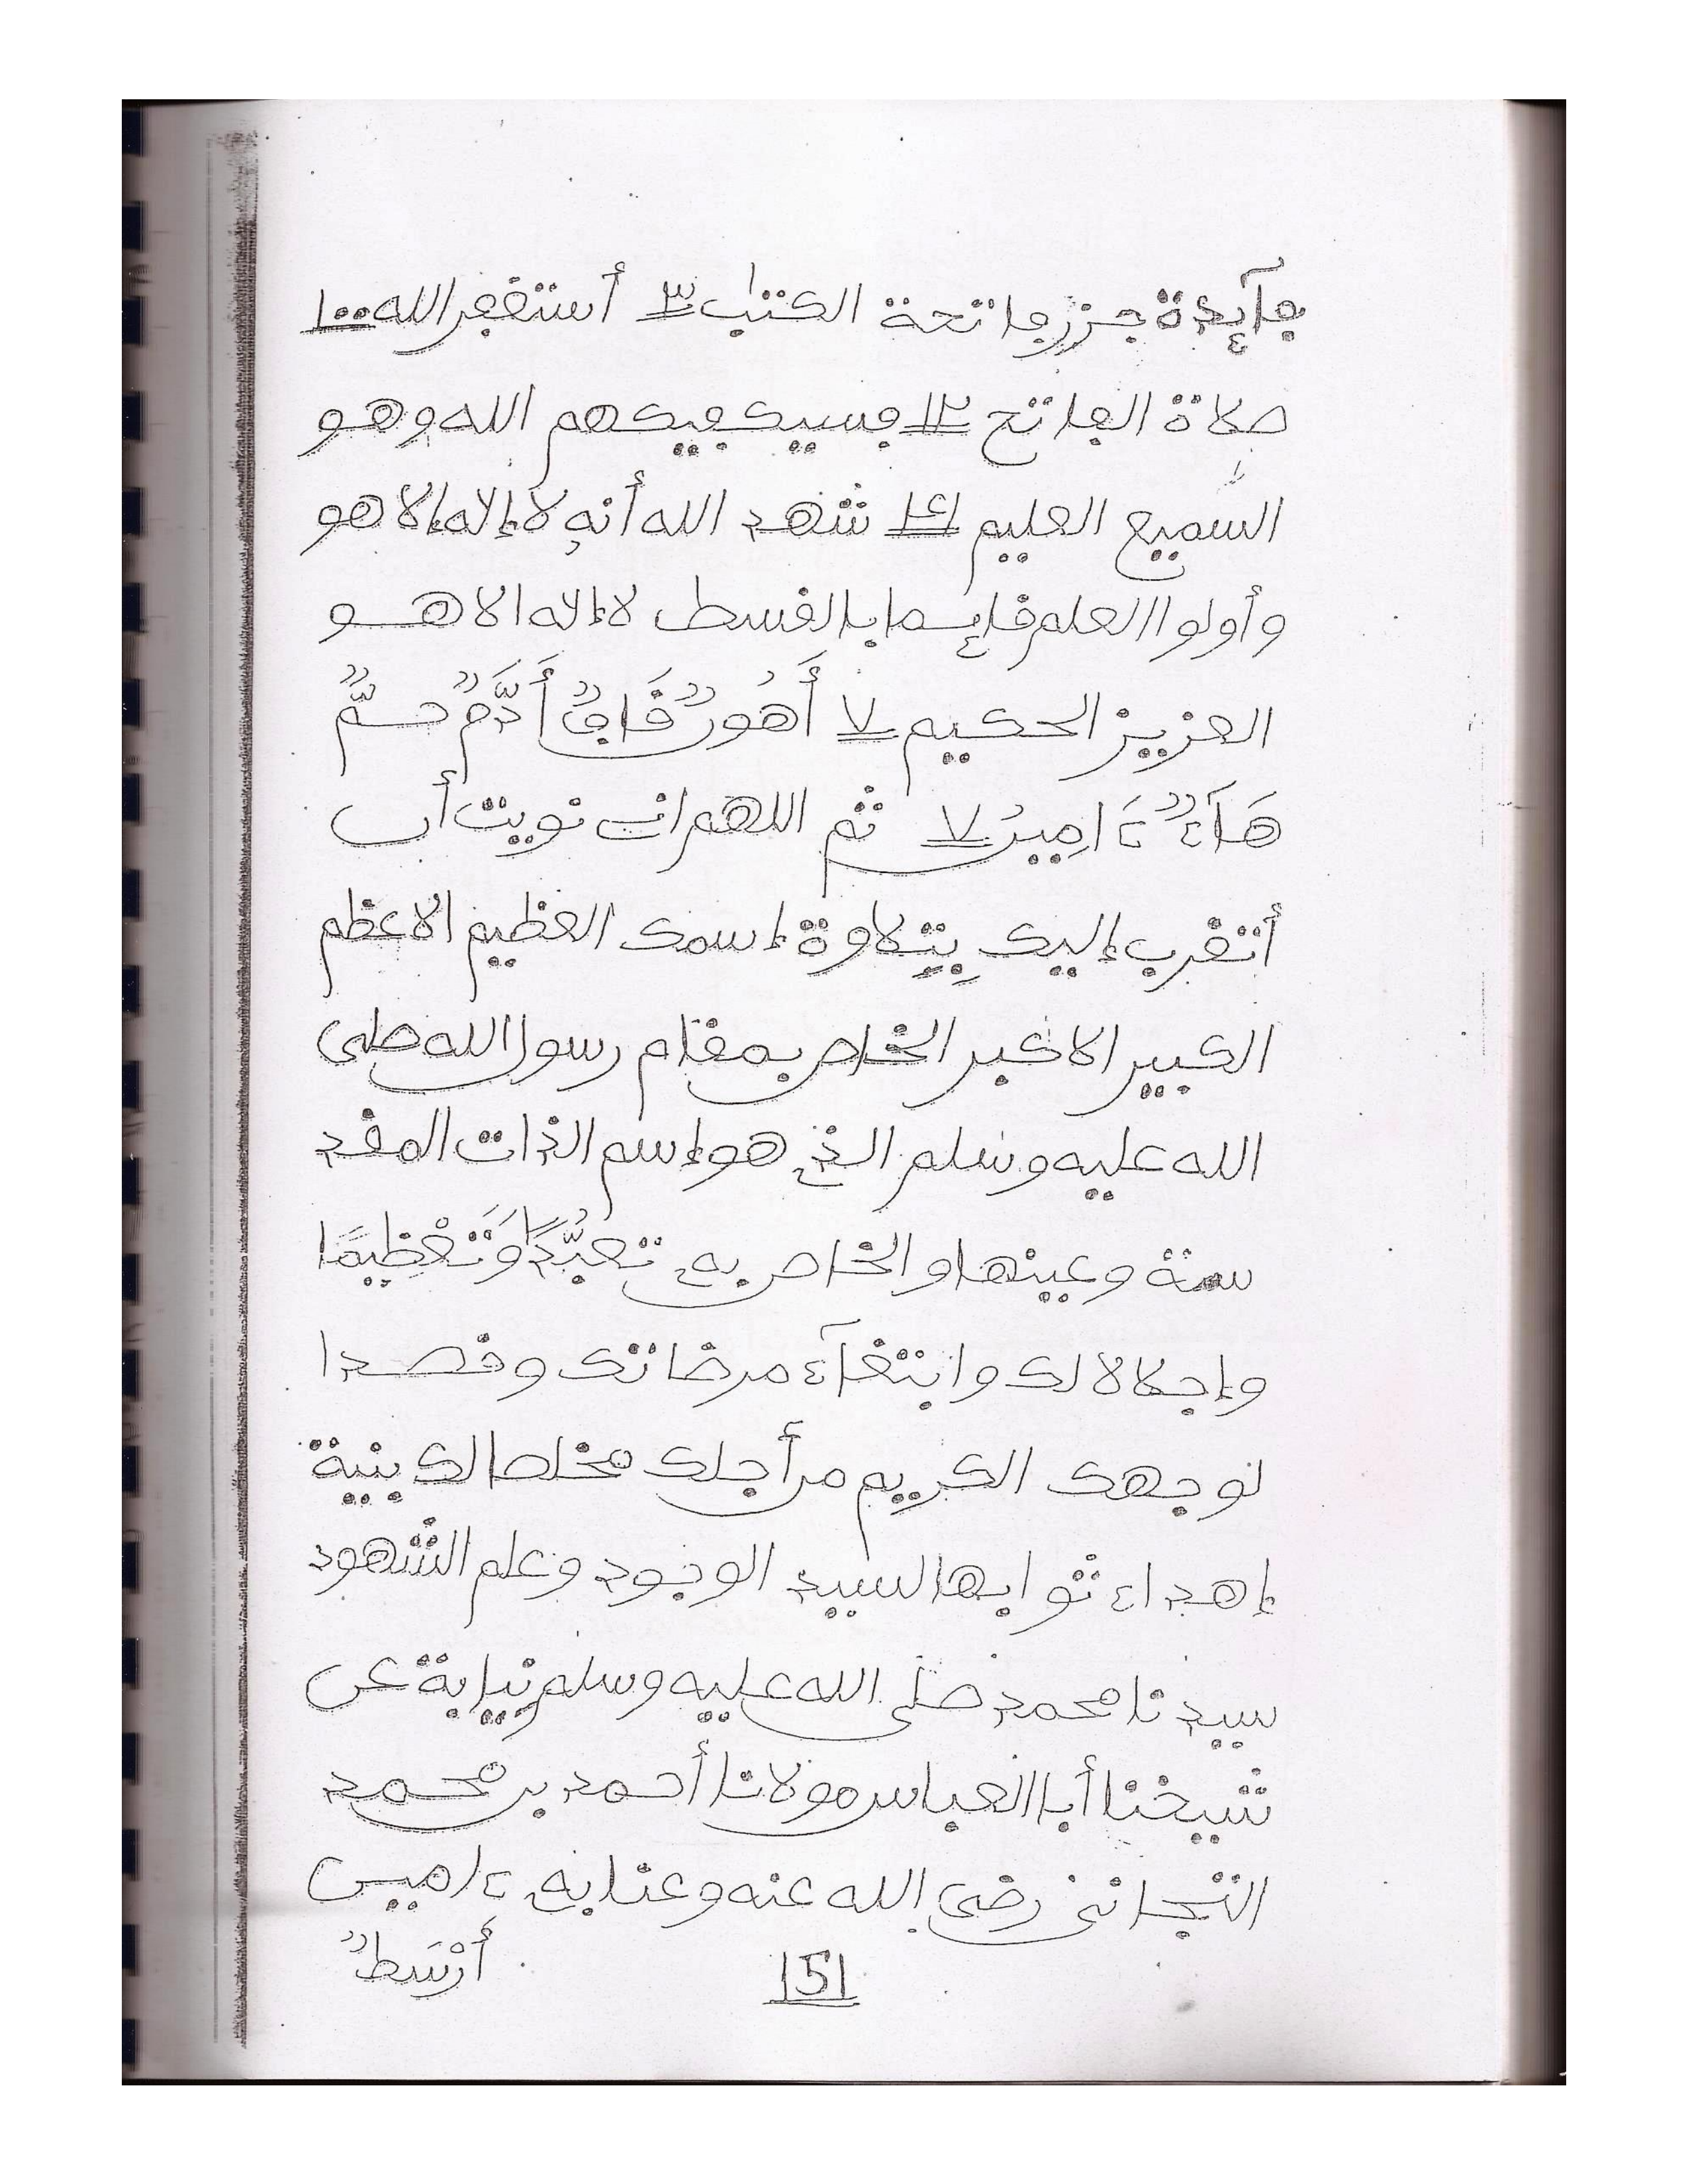 فآئدة حزر فاتحة الكتاب ٣ أستغفر الله ١٠٠
صلاة الفاتح ١٢ فسيكفيكهم الله وهو
السميع العليم ١٤ شهد الله أنه لا إله إلا هو
وأولوا العلم قائما بالقسط لا إله الا هو
العزيز الحكيم ٧ أَهُورٌ قَافٌ أَدَّمَ حَمٌّ
هَآءٌ ءَامِينُ ٧ ثم اللهم إني نويت أن
أتقرب إليك بِتِلاوة إسمك العظيم الاعظم
الكبير الاكبر الخاص بمقام رسول الله صلى
الله عليه وسلم الذي هو إسم الذات المقد
سة وعينها والخاص به تعبُّدًا وَتَعْظِيمًا
وإجلالا لك وابتغآء مرضاتك وقصدا
لوجهك الكريم من أجلك مخلصا لك بنية
إهداء ثوابها لسيد الوجود وعلم الشهود
سيدنا محمد صلى الله عليه وسلم نيابة عن
شيخنا أبا العباس مولانا أحمد بن محمد
التجاني رضي الله عنه وعنا به ءامين
151